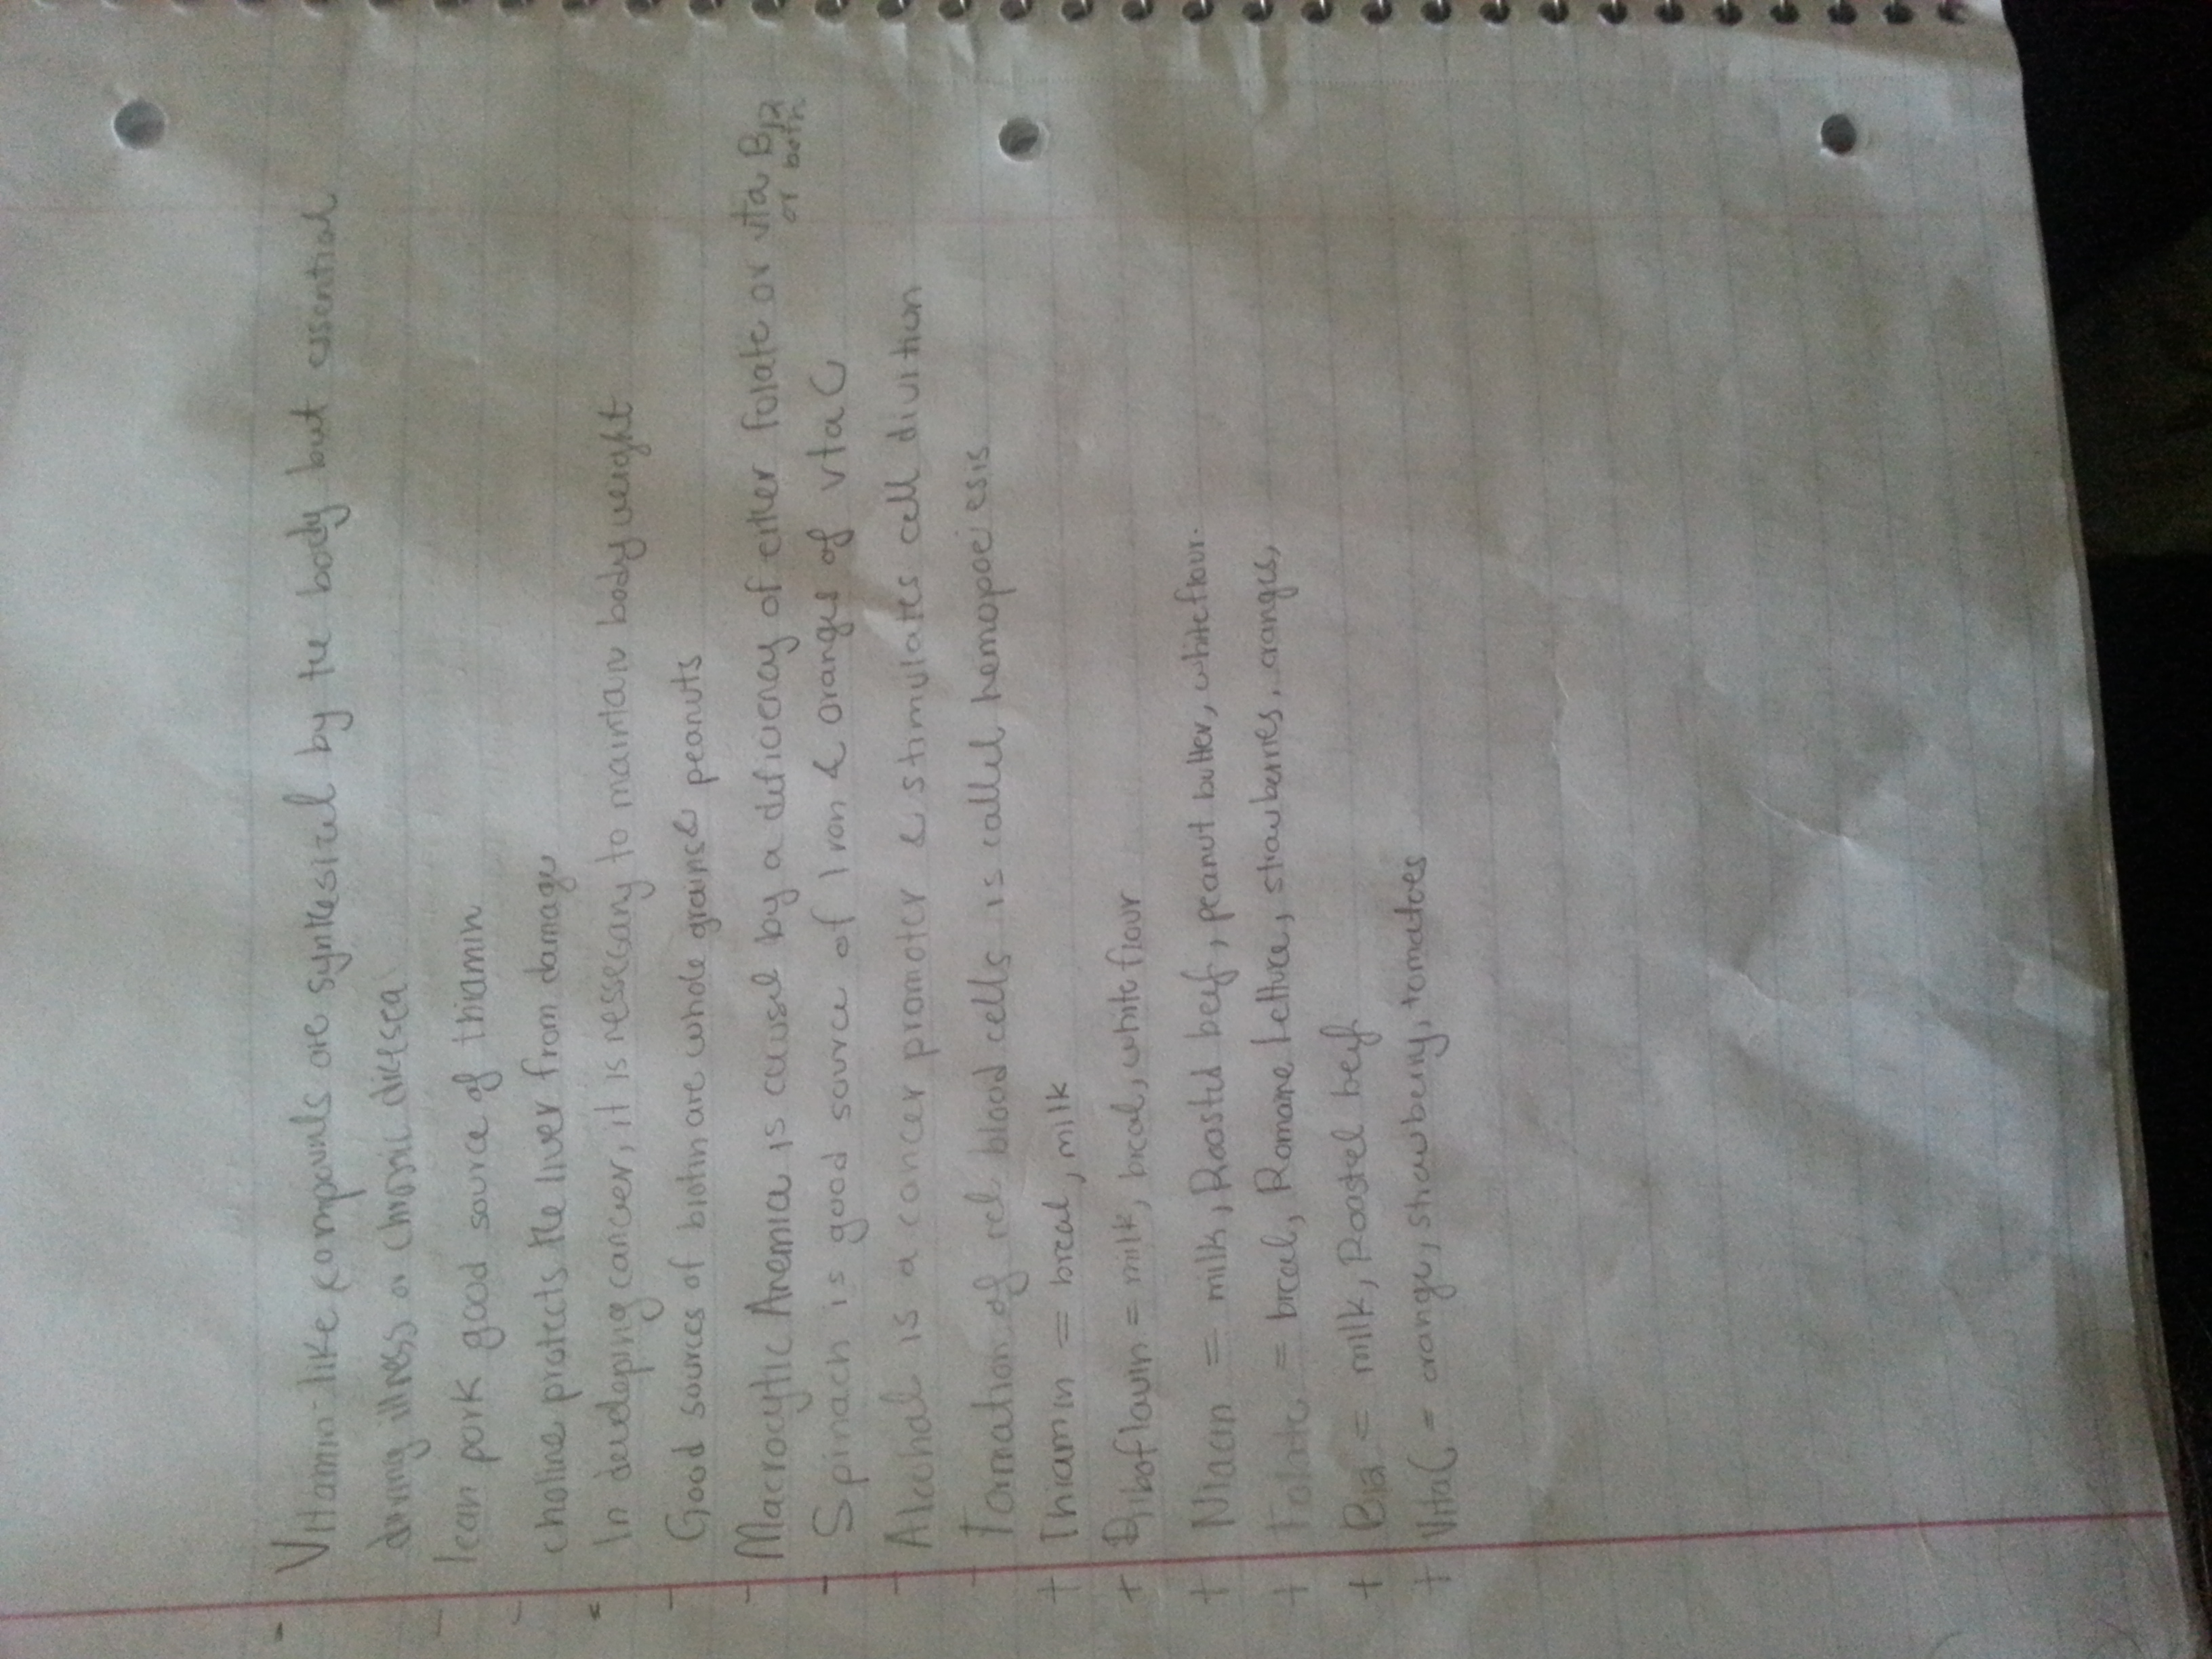 - Vitamin-like compounds are synthesized by the body but essential
during illness or chronic disease
- lean pork good source of thiamin
- choline protects the liver from damage
* In developing cancer, it is nessecary to maintain body weight
- Good sources of biotin are whole grains & peanuts
- Macrocytic Anemia is caused by a deficiency of either folate or vita B12
or both
- Spinach is good source of Iron & oranges of vta C
- Alcohol is a cancer promoter & stimulates cell divition
- Formation of red blood cells is called hemopoeiesis
+ Thiamin = bread, milk
+ Riboflavin = milk, bread, white flour
+ Niacin = milk, Roasted beef, peanut butter, white flour.
+ Folate = bread, Romaine Lettuce, strawberries, oranges,
+ B12 = milk, Roasted beef
+ Vita C = orange, strawberry, tomatoes